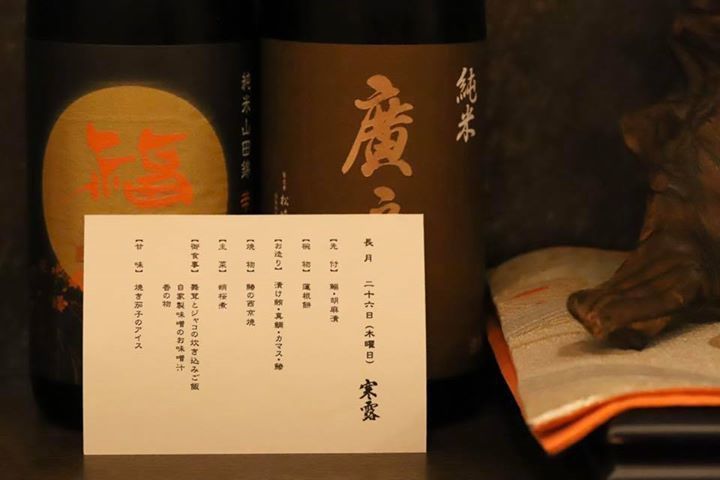 純米
廣
純米山田錦
福
長月 二十六日（木曜日） 寒露
【先 付】 鰯・胡麻漬
【椀 物】 蓮根餅
【お造り】 漬け鮪・真鯛・カマス・鰆
【焼 物】 鰆の西京焼
【主 菜】 蛸桜煮
【御食事】 舞茸とジャコの炊き込みご飯
自家製味噌のお味噌汁
香の物
【甘 味】 焼き茄子のアイス